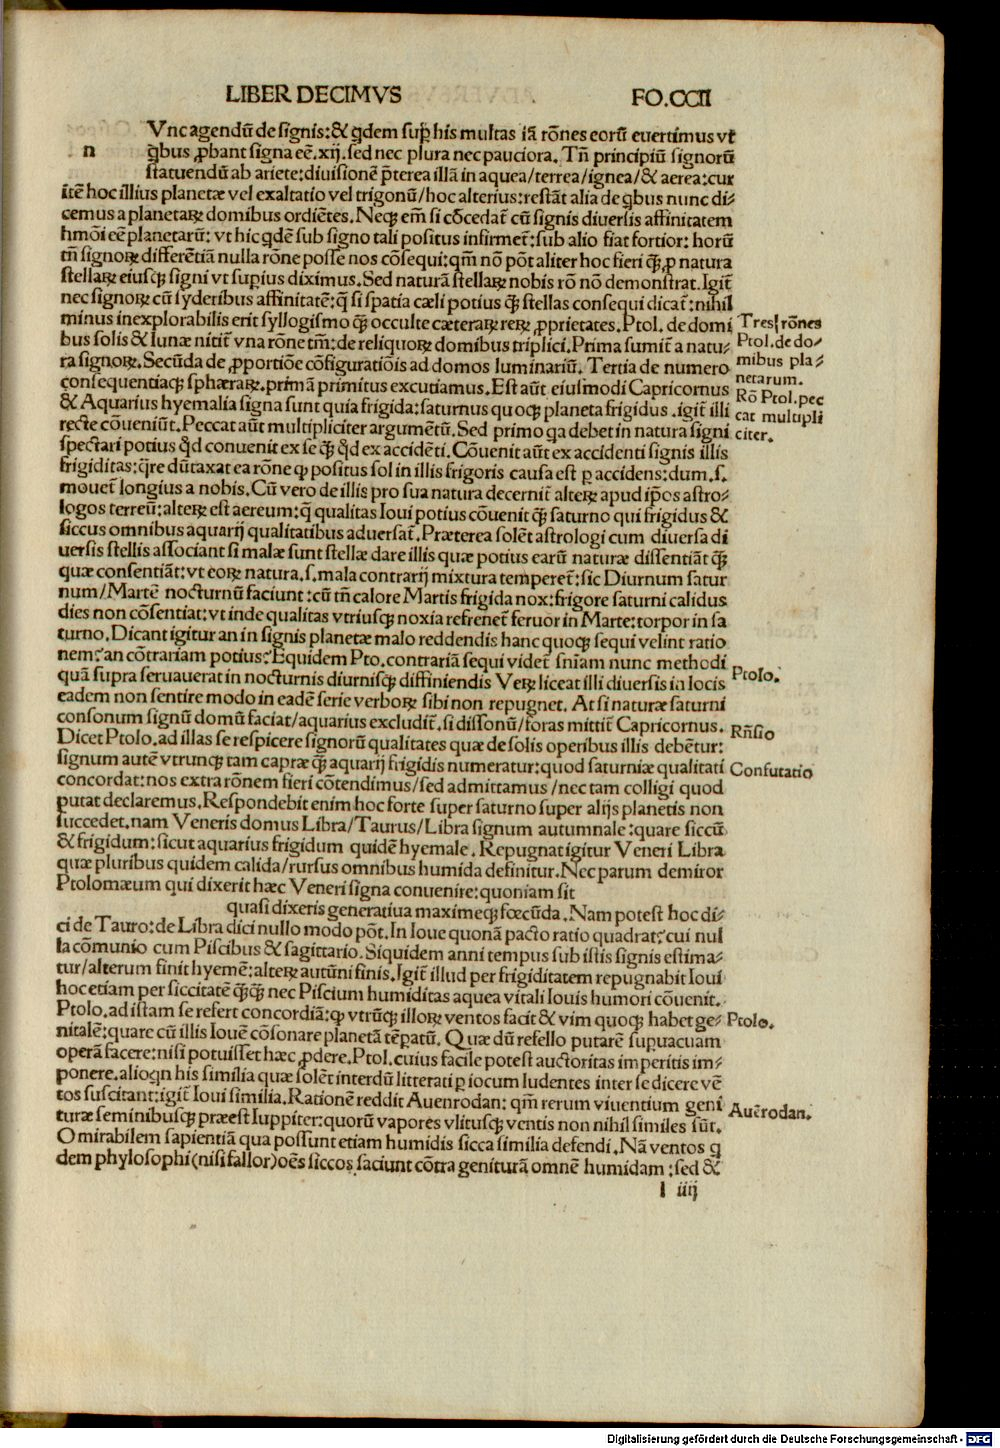 LIBER DECIMVS
FO.CCII
Vnc agendũ de signis:& qdem sup his multas iã rõnes eorũ euertimus vt
n qbus ꝓbant signa eẽ.xij.sed nec plura nec pauciora. Tñ principiũ signorũ
statuendũ ab ariete:diuisionẽ p̃terea illã in aquea/terrea/ignea/& aerea:cur
itẽ hoc illius planetæ vel exaltatio vel trigonũ/hoc alterius:restãt alia de qbus nunc di⸗
cemus a planetaꝝ domibus ordiẽtes. Neqꝫ em̃ si cõcedat̃ cũ signis diuersis affinitatem
hmõi eẽ planetarũ: vt hic qdẽ sub signo tali positus infirmet̃:sub alio fiat fortior: horũ
tñ signoꝝ differẽtiã nulla rõne posse nos cõsequi:qm̃ nõ põt aliter hoc fieri q̃ꝫ ꝓ natura
stellaꝝ eiusqꝫ signi vt supius diximus. Sed naturã stellaꝝ nobis rõ nõ demonstrat. Igit̃
nec signoꝝ cũ syderibus affinitatẽ:q̃ si spatia cæli potius q̃ꝫ stellas consequi dicat̃:nihil
minus inexplorabilis erit syllogismo q̃ꝫ occulte cæteraꝝ reꝝ ꝓprietates. Ptol. de domi
bus solis & lunæ nitit̃ vna rõne tm̃: de reliquoꝝ domibus triplici. Prima sumit̃ a natu⸗
ra signoꝝ. Secũda de ꝓportiõe cõfiguratiõis ad domos luminariũ. Tertia de numero
consequentiaqꝫ sphæraꝝ. primã primitus excutiamus. Est aũt eiusmodi Capricornus
& Aquarius hyemalia signa sunt quia frigida:saturnus quoqꝫ planeta frigidus .igit̃ illi
recte cõueniũt. Peccat aũt multipliciter argumẽtũ. Sed primo qa debet in natura signi
spectari potius qd conuenit ex se q̃ꝫ qd ex accidẽti. Cõuenit aũt ex accidenti signis illis
frigiditas:q̃re dũtaxat ea rõne ꝙ positus sol in illis frigoris causa est ꝑ accidens:dum.s.
mouet̃ longius a nobis. Cũ vero de illis pro sua natura decernit̃ alteꝝ apud ip̃os astro⸗
logos terreũ:alteꝝ est aereum:q̃ qualitas Ioui potius cõuenit q̃ꝫ saturno qui frigidus &
siccus omnibus aquarij qualitatibus aduersat̃. Præterea solẽt astrologi cum diuersa di
uersis stellis associant si malæ sunt stellæ dare illis quæ potius earũ naturæ dissentiãt q̃ꝫ
quæ consentiãt:vt eoꝝ natura.s.mala contrarij mixtura temperet̃:sic Diurnum satur
num/Martẽ nocturnũ faciunt:cũ tñ calore Martis frigida nox:frigore saturni calidus
dies non cõsentiat:vt inde qualitas vtriusqꝫ noxia refrenet̃ feruor in Marte:torpor in sa
turno. Dicant igitur an in signis planetæ malo reddendis hanc quoqꝫ sequi velint ratio
nem:an cõtrariam potius:Equidem Pto.contrariã sequi videt̃ sñiam nunc methodi
quã supra seruauerat in nocturnis diurnisqꝫ diffiniendis Veꝝ liceat illi diuersis in locis
eadem non sentire modo in eadẽ serie verboꝝ sibi non repugnet. At si naturæ saturni
consonum signũ domũ faciat/aquarius excludit̃. si dissonũ/foras mittit̃ Capricornus.
Dicet Ptolo.ad illas se respicere signorũ qualitates quæ de solis operibus illis debẽtur:
signum autẽ vtrunqꝫ tam capræ q̃ꝫ aquarij frigidis numeratur:quod saturniæ qualitati
concordat:nos extra rõnem fieri cõtendimus/sed admittamus/nec tam colligi quod
putat declaremus. Respondebit enim hoc forte super saturno super alijs planetis non
succedet.nam Veneris domus Libra/Taurus/Libra signum autumnale:quare siccũ
& frigidum:sicut aquarius frigidum quidẽ hyemale. Repugnat igitur Veneri Libra
quæ pluribus quidem calida/rursus omnibus humida definitur. Nec parum demiror
Ptolomæum qui dixerit hæc Veneri signa conuenire:quoniam sit
quasi dixeris generatiua maximeqꝫ fœcũda. Nam potest hoc di⸗
ci de Tauro:de Libra dici nullo modo põt. In Ioue quonã pacto ratio quadrat:cui nul
la cõmunio cum Piscibus & sagittario. Siquidem anni tempus sub istis signis estima⸗
tur/alterum finit hyemẽ:alteꝝ autũni finis. Igit̃ illud per frigiditatem repugnabit Ioui
hoc etiam per siccitatẽ q̃ꝫq̃ꝫ nec Piscium humiditas aquea vitali Iouis humori cõuenit.
Ptolo.ad istam se refert concordiã:ꝙ vtrũqꝫ illoꝝ ventos facit & vim quoqꝫ habet ge⸗
nitalẽ:quare cũ illis Iouẽ cõsonare planetã tẽpatũ. Quæ dũ refello putarẽ supuacuam
operã facere:nisi potuisset hæc ꝓdere.Ptol.cuius facile potest auctoritas imperitis im⸗
ponere.alioqn his similia quæ solẽt interdũ litterati ꝑ iocum ludentes inter se dicere vẽ
tos suscitant:igit̃ Ioui similia. Rationẽ reddit Auenrodan: qm̃ rerum viuentium geni
turæ seminibusqꝫ præest Iuppiter:quorũ vapores vlitusqꝫ ventis non nihil similes sũt.
O mirabilem sapientiã qua possunt etiam humidis sicca similia defendi. Nã ventos q
dem phylosophi(nisi fallor)oẽs siccos faciunt cõtra geniturã omnẽ humidam:sed &
l iiij
Tres rõnes
Ptol.de do⸗
mibus pla⸗
netarum.
Rõ Ptol.pec
cat multipli
citer.
Ptolo.
Rñsio
Confutatio
Ptolo.
Auẽrodan.
Digitalisierung gefördert durch die Deutsche Forschungsgemeinschaft - DFG